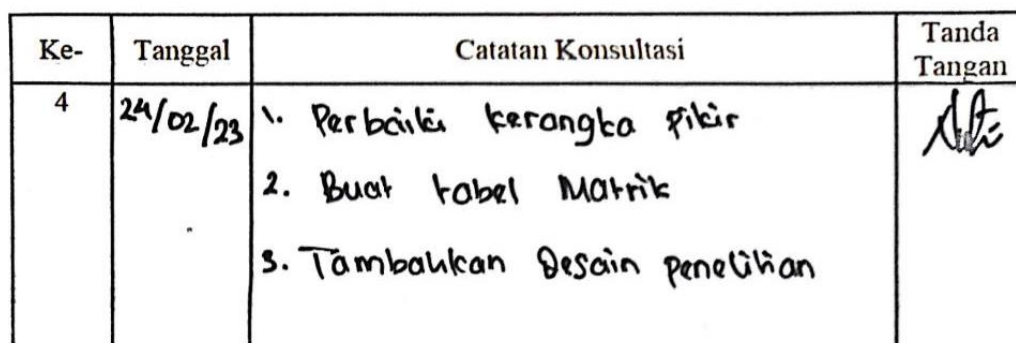 Ke- Tanggal Catatan Konsultasi Tanda Tangan
4 24/02/23 1. Perbaiki kerangka pikir
2. Buat tabel Matrik
3. Tambahkan Desain penelitian